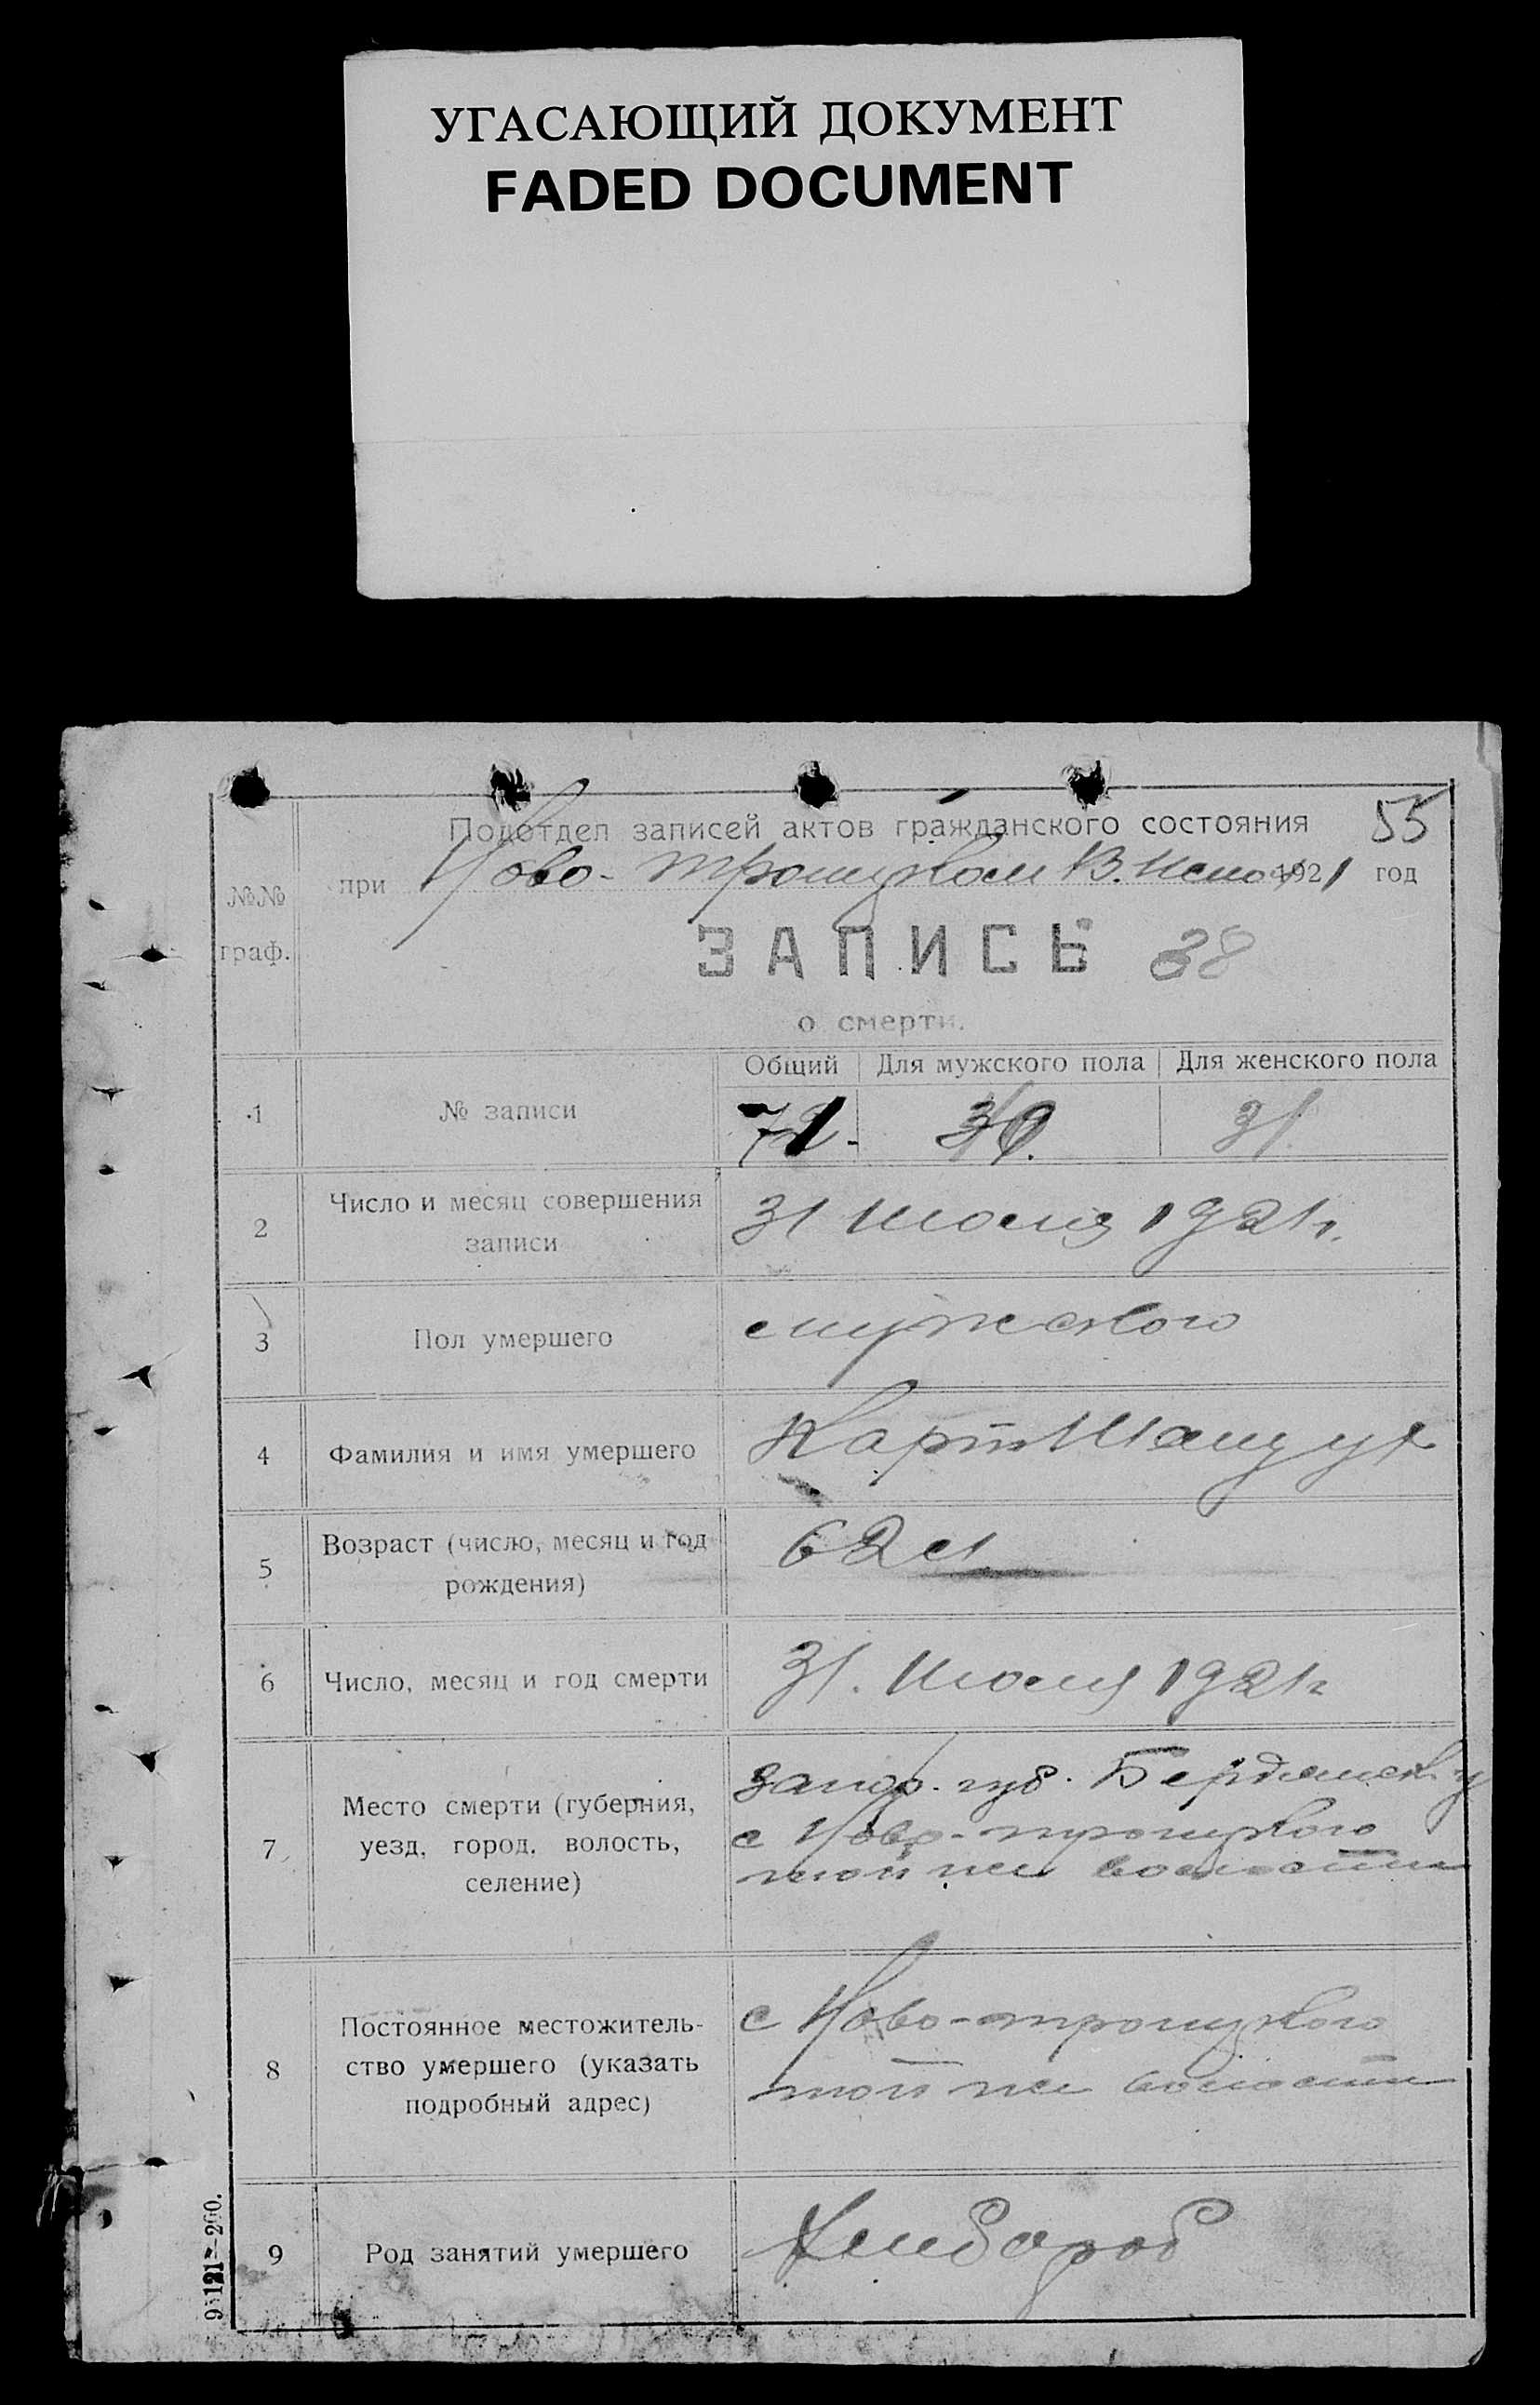 УГАСАЮЩИЙ ДОКУМЕНТ
FADED DOCUMENT
55
Подотдел записей актов гражданского состояния
№№ граф.
при Ново-троицком В. 1921 год
ЗАПИСЬ 38
о смерти.
Общий Для мужского пола Для женского пола
1 № записи 71 31
2 Число и месяц совершения
записи
31 июля 1921 г.
3 Пол умершего мужского
4 Фамилия и имя умершего Карп
5 Возраст (число, месяц и год
рождения)
62 л.
6 Число, месяц и год смерти 31. июля 1921 г
7 Место смерти (губерния,
уезд, город, волость,
селение)
запор. губ. Бердянск. у
с Ново-троицкого
той же волости
8 Постоянное местожитель-
ство умершего (указать
подробный адрес)
с Ново-троицкого
той же волости
9 Род занятий умершего Хлебороб